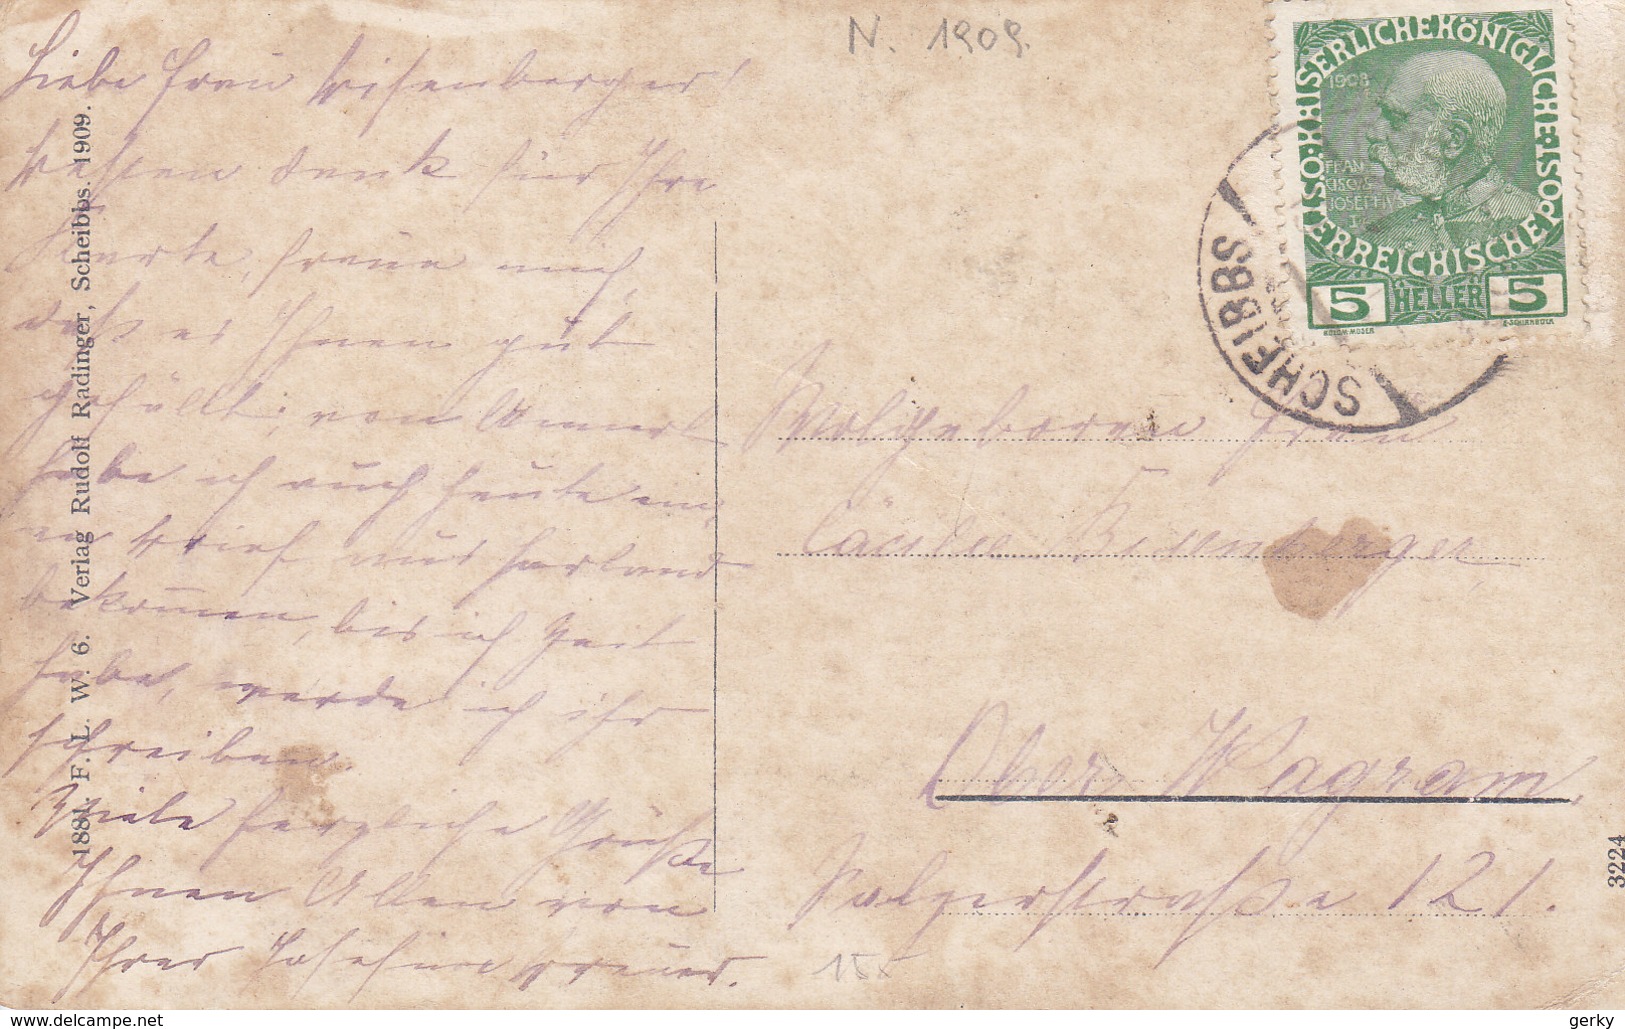 N. 1909.
Liebe Frau Wisenberger!
Besten Dank für Ihre
Karte, freue mich,
daß es Ihnen gut
gefällt; von
habe ich auch heute ein-
en Brief aus Harland
bekommen, bis ich Zeit
habe, werde ich ihr
schreiben.
Viele herzliche Grüße
Ihnen Allen von
Ihrer Josefine
1881. F. L. W. 6. Verlag Rudolf Radinger, Scheibbs. 1909.
KAISERLICHE KÖNIGLICHE ÖSTERREICHISCHE POST
1908
FRAN
CISCVS
JOSEPHVS
I.
5 HELLER 5
KOLOM. MOSER
F. SCHIRNBÖCK
SCHEIBBS
Wolgeboren Frau
Cäcilie Bisenberger
Ober Wagram.
Salzerstraße 121.
3224
gerky
www.delcampe.net